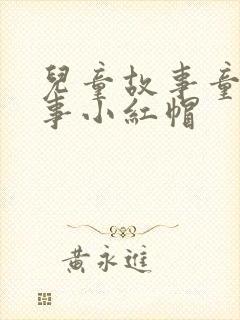 兒童故事童
事小紅帽
黃永進